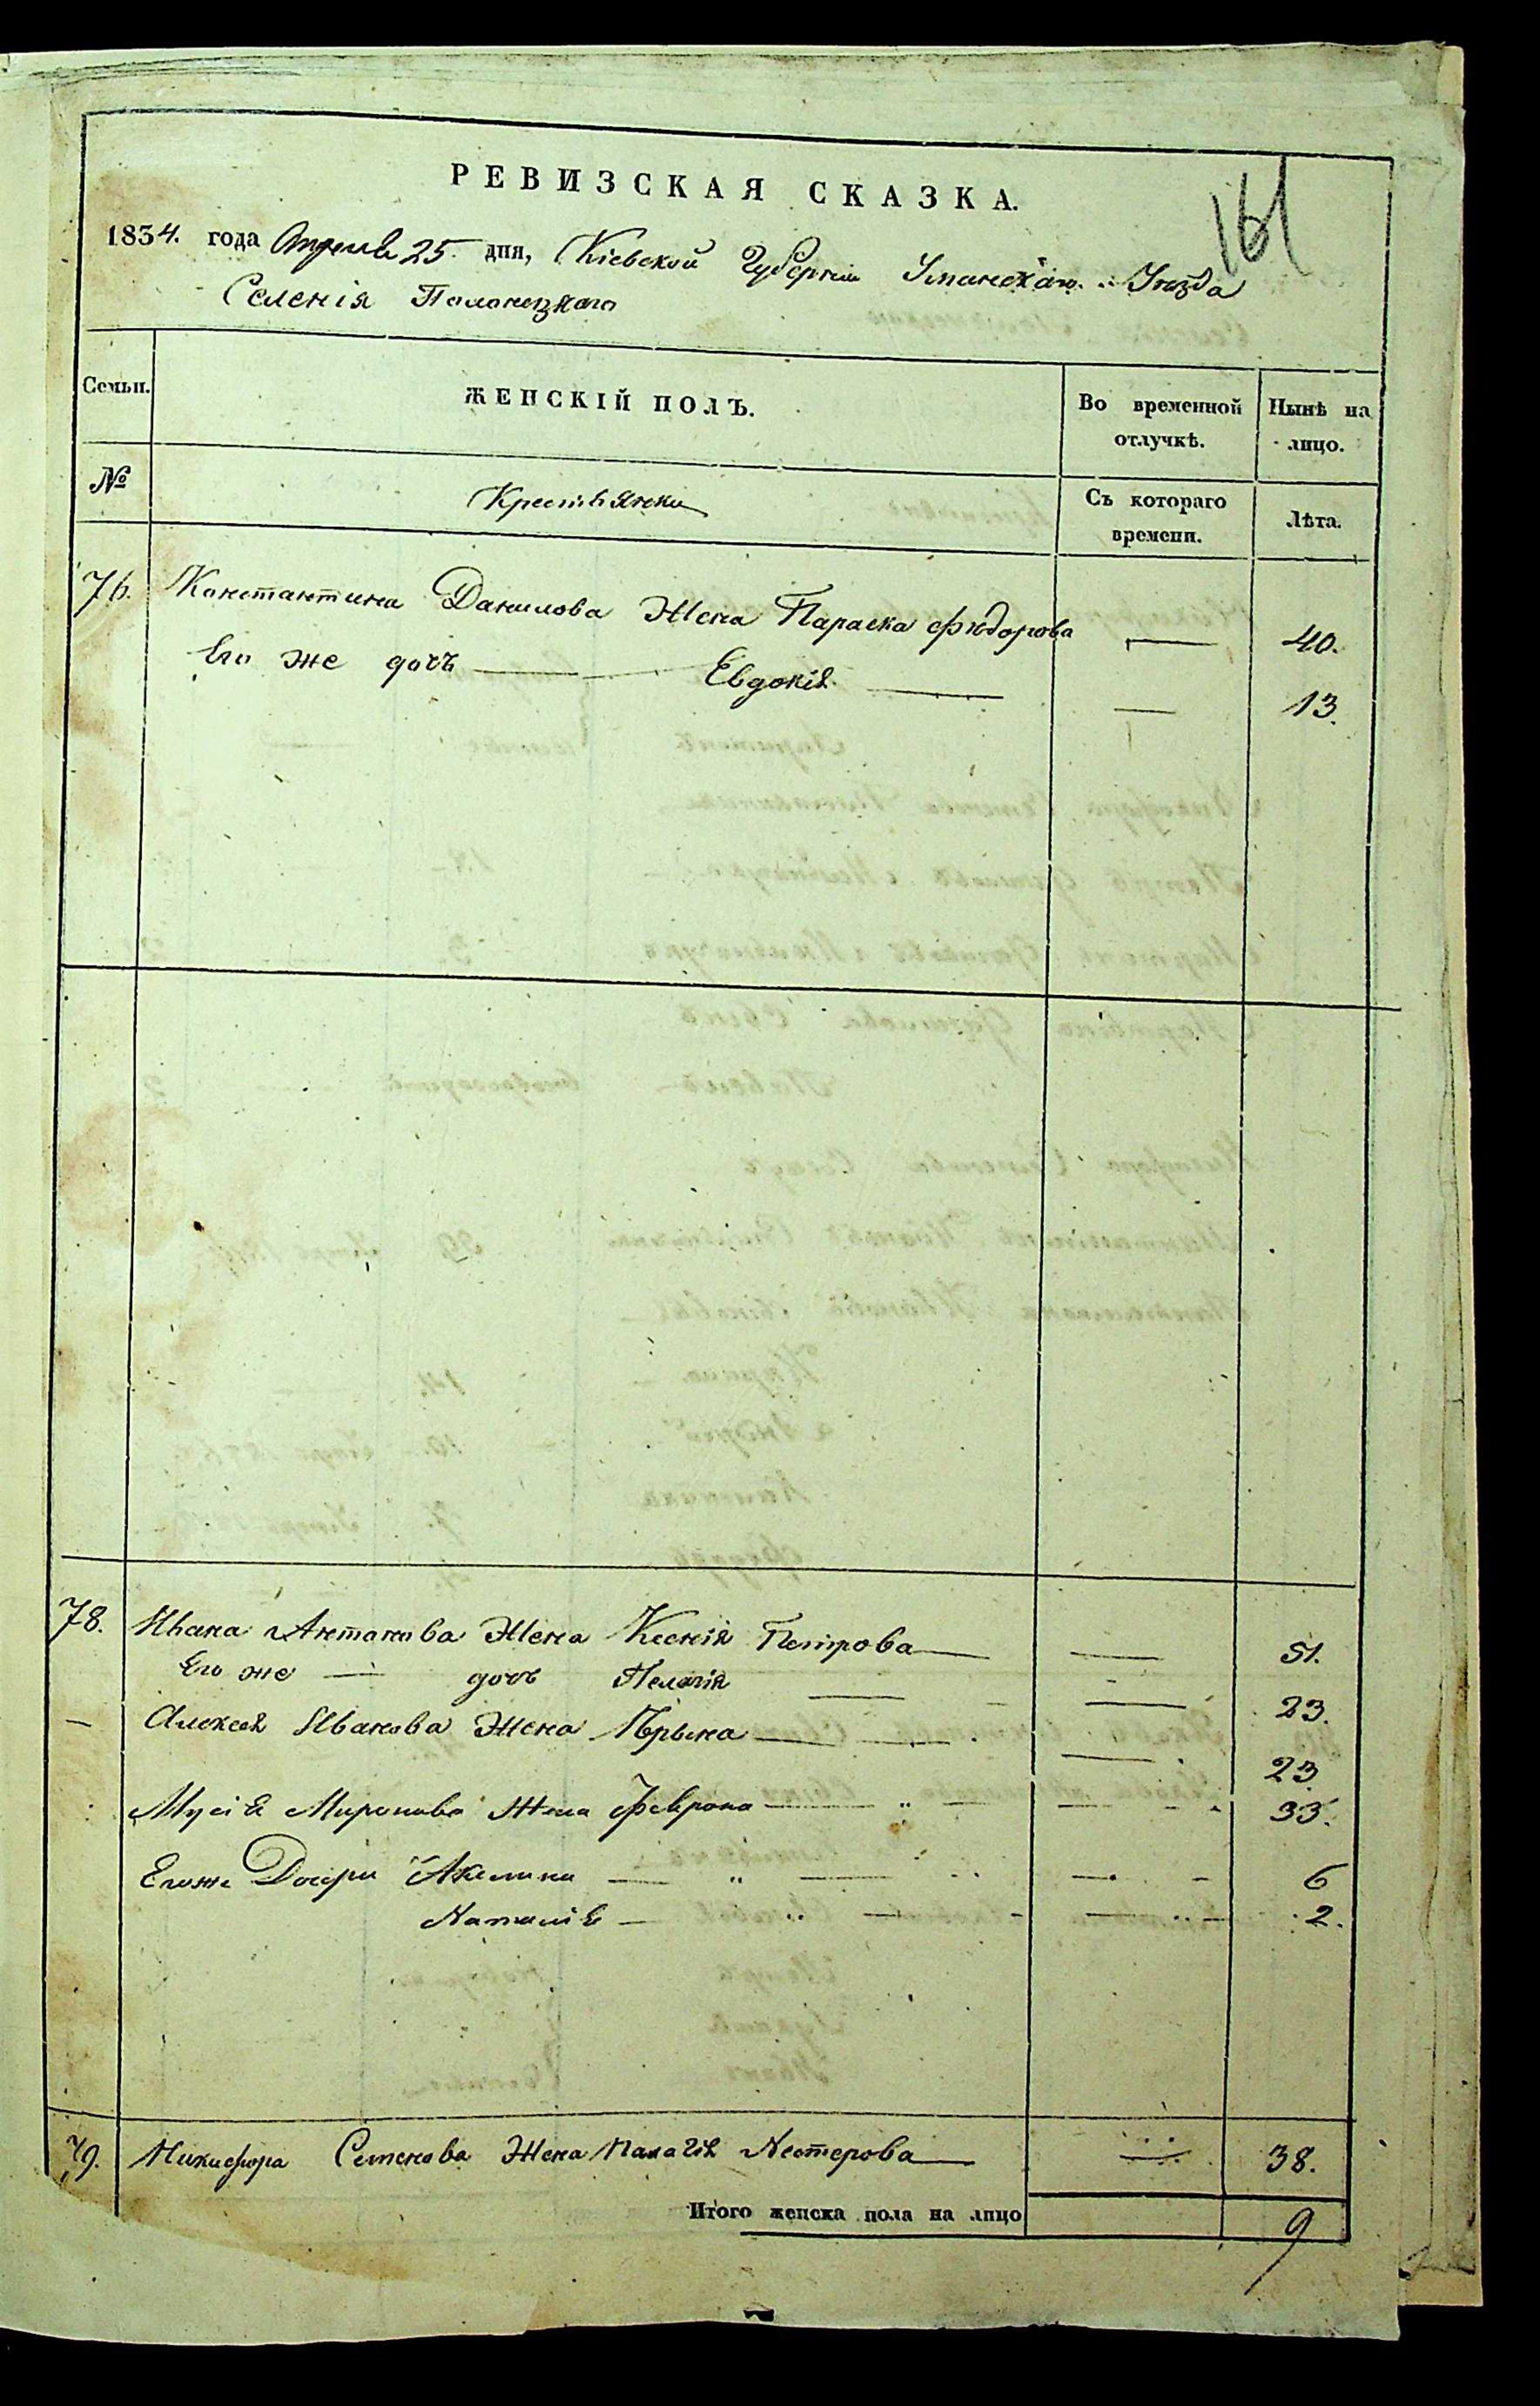 161
РЕВИЗСКАЯ СКАЗКА.
1834. года Апреля 25. дня, Кіевской Губерніи Уманскаго Уезда
Селенія Полонецкаго
Семьи. ЖЕНСКІЙ ПОЛЪ. Во временной отлучкѣ. Нынѣ на лицо.
№ Крестьянки Съ котораго времени. Лѣта.
76. Константина Данилова Жена Параска Федорова — 40.
Его же дочь — Евдокія — — 13.
78. Ивана Антонова Жена Ксенія Петрова — — 51.
Его же — дочь Пелагія — — 23.
— Алексея Иванова Жена Ирына — — 23
Мусія Миронова Жена Феврона — " — — 33.
Егоже Дочери Акилина — " — — 6
Наталія — " — — 2.
79. Никифора Семенова Жена Палагія Нестерова — — 38.
Итого женска пола на лицо 9